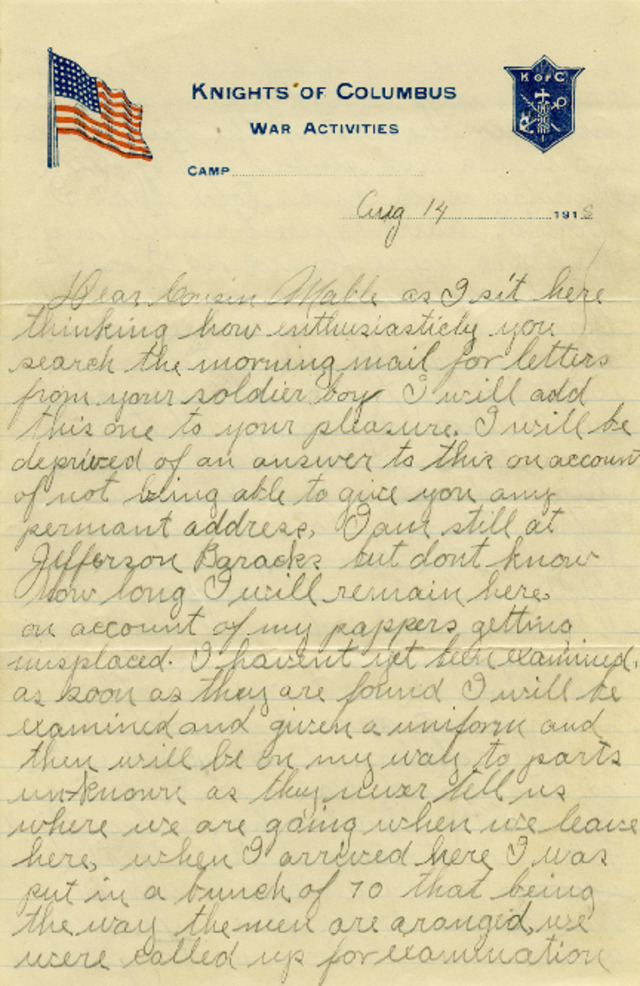 K of C
KNIGHTS OF COLUMBUS
WAR ACTIVITIES
CAMP
Aug 14 1918
Dear Cousin Mable as I sit here
thinking how inthusiasticly you
search the morning mail for letters
from your soldier boy I will add
this one to your pleasure. I will be
deprived of an answer to this on account
of not being able to give you any
permant address, I am still at
Jefferson Baracks but dont know
how long I will remain here.
on account of my pappers getting
misplaced. I havent yet been examined.
as soon as they are found I will be
examined and given a uniform and
then will be on my way to parts
un-known as they never tell us
where we are going when we leave
here, when I arrived here I was
put in a bunch of 70 that being
the way the men are aranged, we
were called up for examination